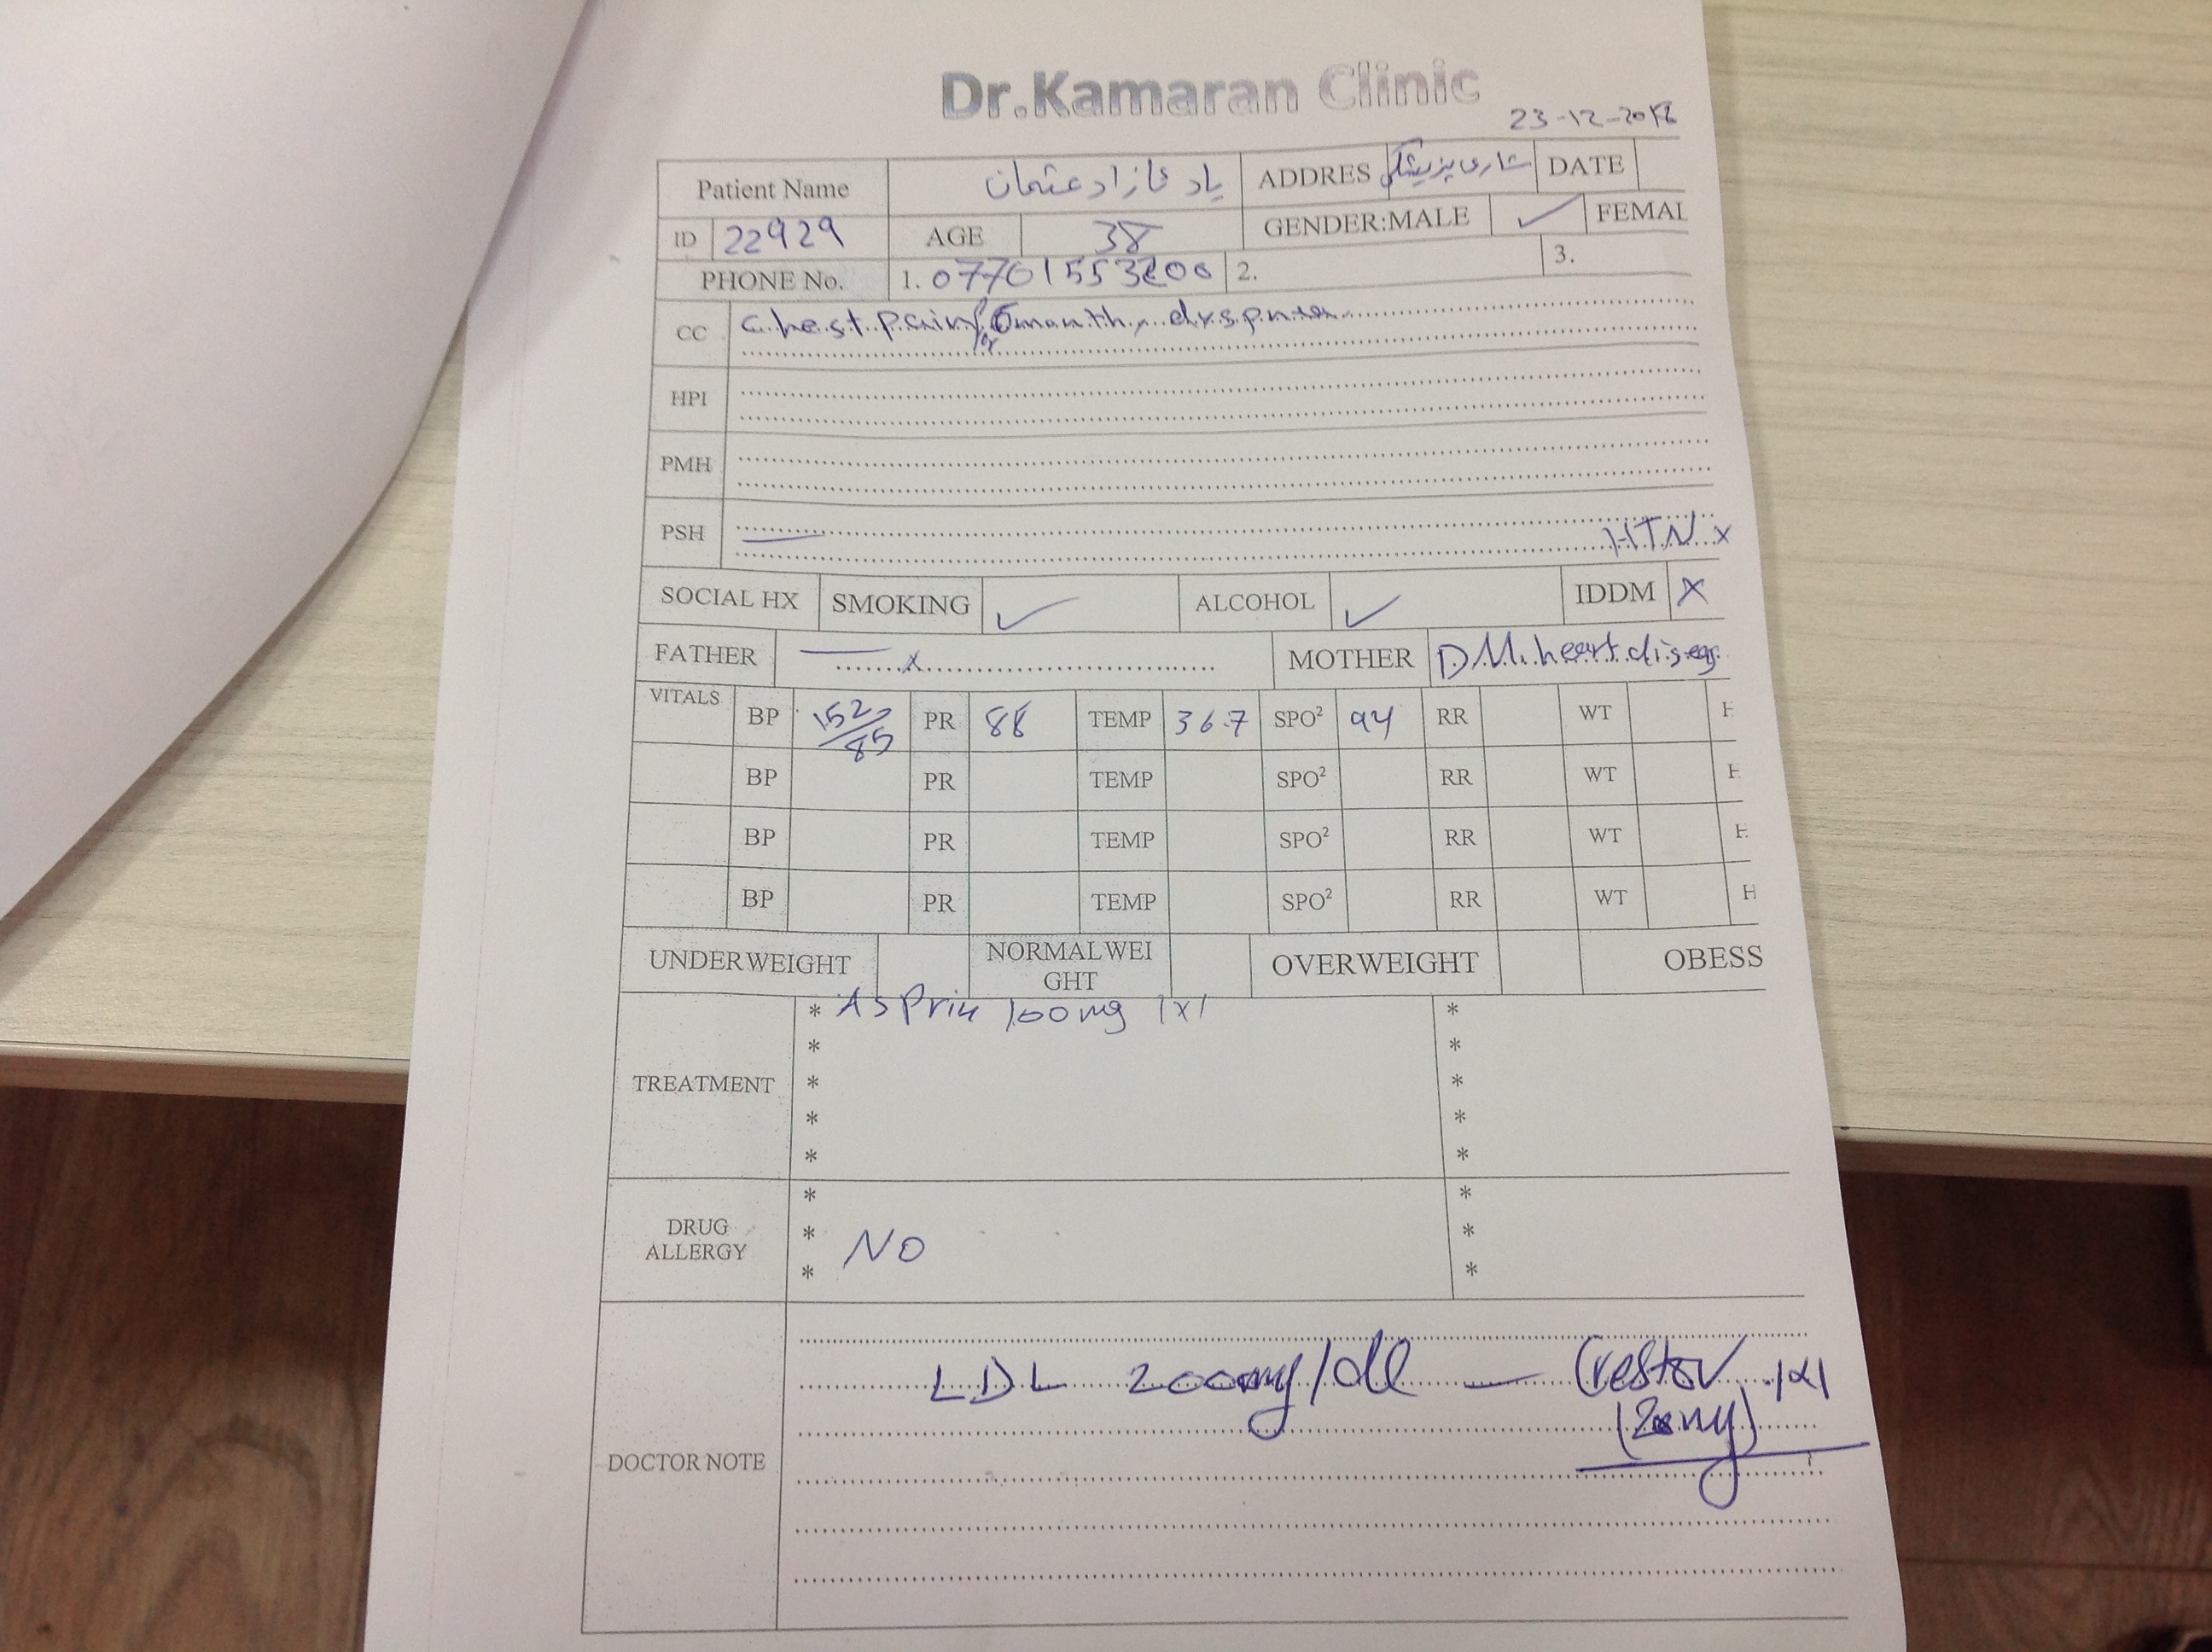 Dr.Kamaran Clinic
23-12-2018
Patient Name یاد ئازاد عثمان ADDRES شاری پزیشکی DATE
ID 22929 AGE 38 GENDER:MALE ✓ FEMAL
PHONE No. 1. 2. 3.
CC chest pain for month, dyspnea
HPI
PMH
PSH — HTN x
SOCIAL HX SMOKING ✓ ALCOHOL ✓ IDDM X
FATHER — x MOTHER DM, heart diseas
VITALS BP 152/85 PR 88 TEMP 36.7 SPO² 94 RR WT H
BP PR TEMP SPO² RR WT H
BP PR TEMP SPO² RR WT H
BP PR TEMP SPO² RR WT H
UNDERWEIGHT NORMALWEI
GHT OVERWEIGHT OBESS
TREATMENT * Asprin 100mg 1x1 *
* *
* *
* *
* *
DRUG
ALLERGY * *
* NO *
* *
DOCTOR NOTE
LDL 200mg/dl — Crestor 1x1
(20mg)